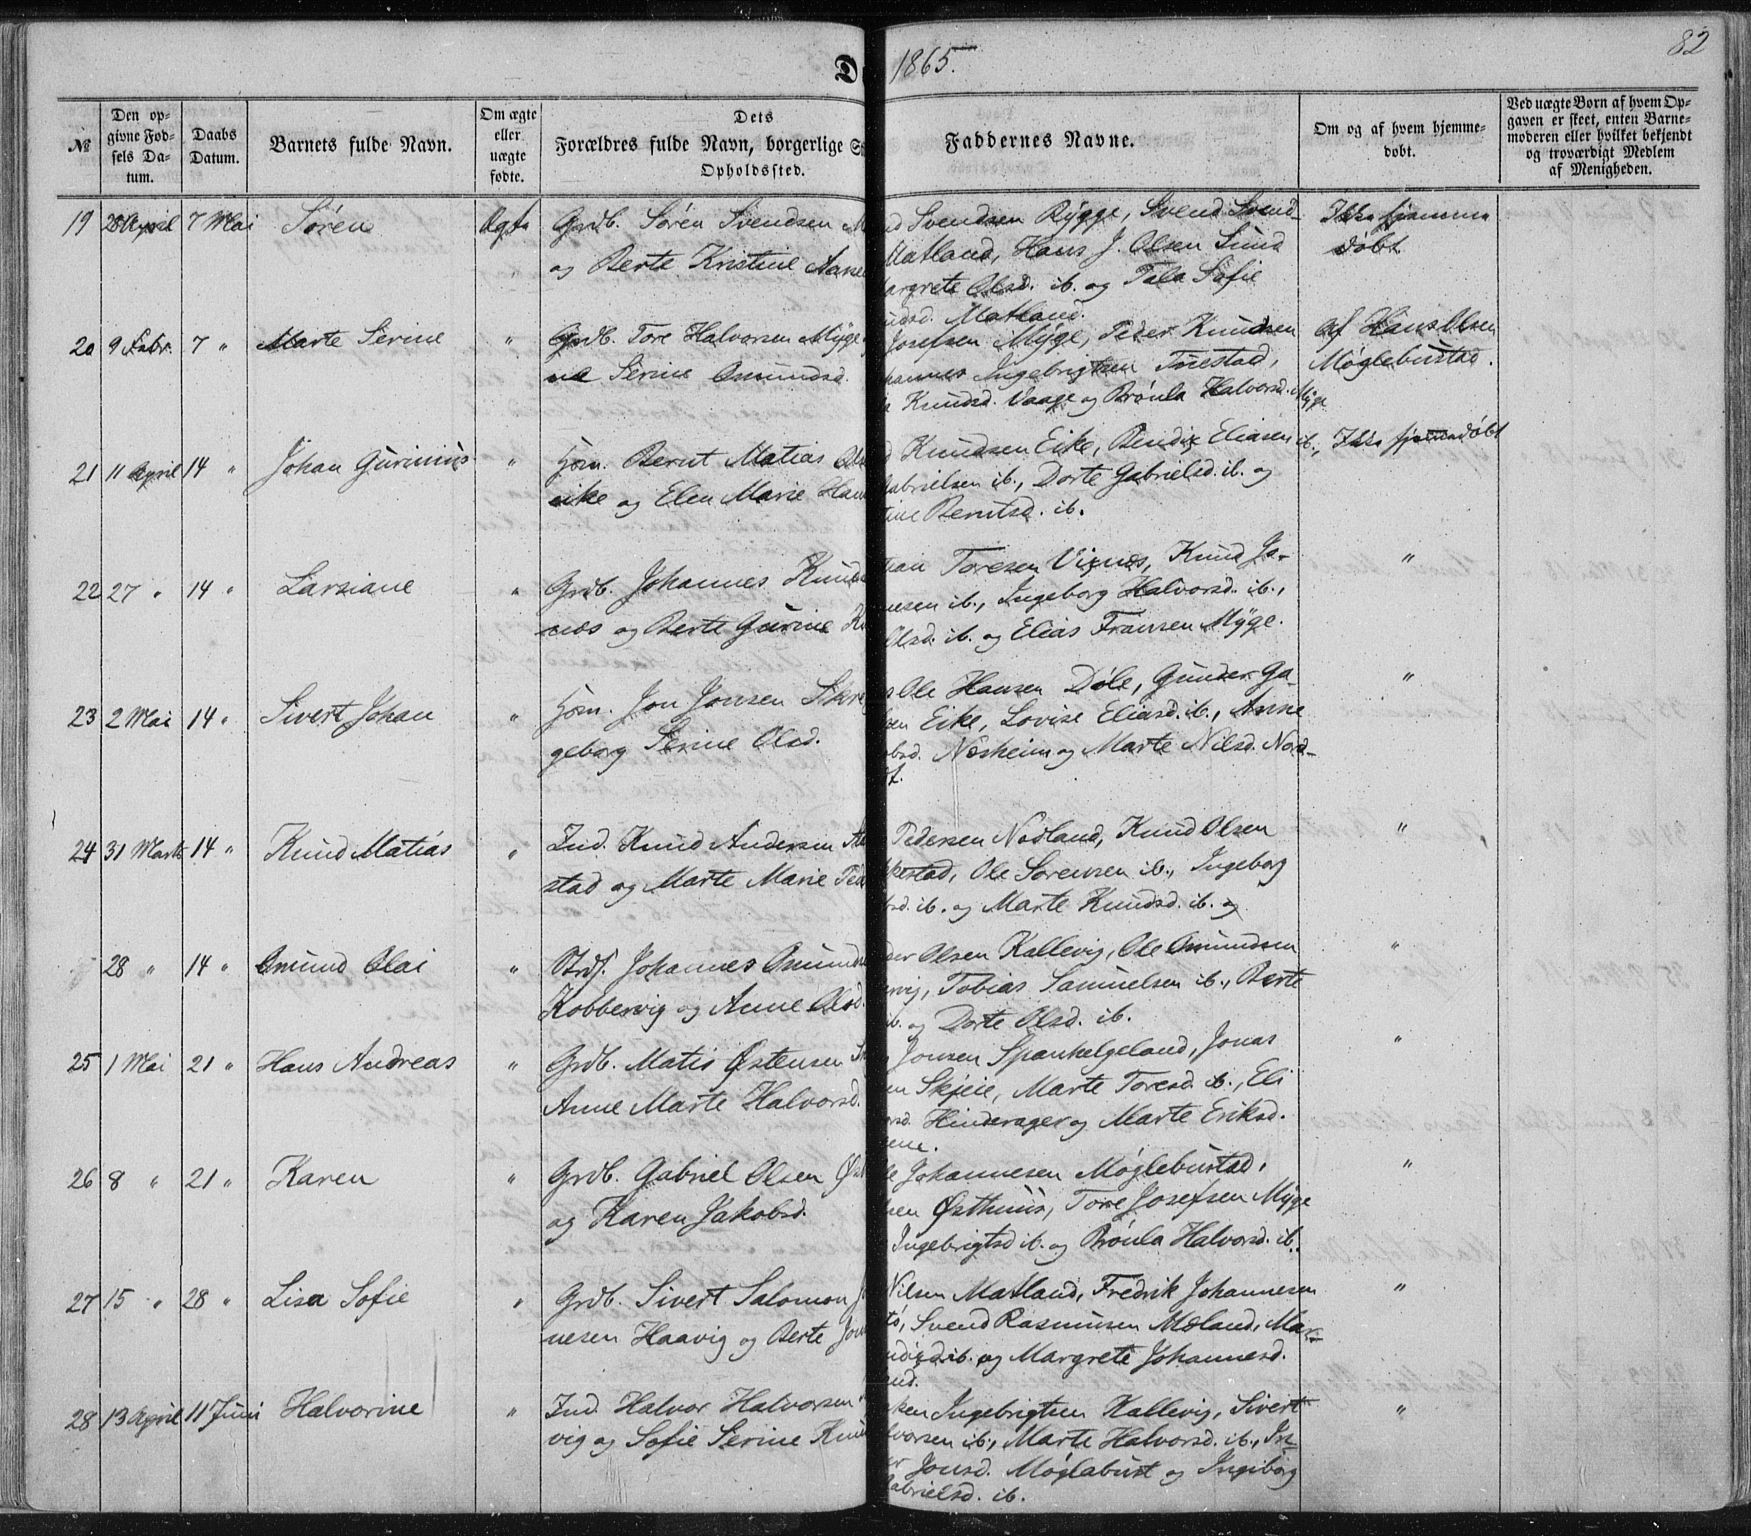 1865.
82
№
Den op-
givne Fød-
sels Da-
tum.
Daabs
Datum.
Barnets fulde Navn.
Om ægte
eller
uægte
fødte.
Dets
Forældres fulde Navn, borgerlige S
Opholdssted.
Faddernes Navne.
Om og af hvem hjemme-
døbt.
Ved uægte Børn af hvem Op-
gaven er skeet, enten Barne-
moderen eller hvilket bekjendt
og troværdigt Medlem
af Menigheden.
19 28 April 7 Mai Søren Ægte Grdb. Søren Svendsen M
og Berte Kristine Aane
Svendsen Rygge, Svend Svend-
Matland, Hans J. Olsen Sund
argrete Olsd. ib. og Tala Sofie
Matland.
Ikke hjemme
døbt
20 9 Febr. 7 " Marte Serine " Grdb. Tore Halvorsen Myge
ne Serine Omundsd.
Josefsen Myge, Peder Knudsen
hannes Ingebrigtsen Tuestad,
Knudsd. Vaage og Brønla Halvorsd. Myge
Af Hans Olsen
Møglebustad.
21 11 April 14 " Johan Gurinius " Hsm. Bernt Matias Ols
eike og Elen Marie Han
Knudsen Eike, Bendix Eliasen ib.,
Gabrielsen ib., Dorte Gabrielsd. ib. og
tine Berntsd. ib.
Ikke hjemmedøbt
22 27 " 14 " Larsiane " Grdb. Johannes Knuds
nes og Berte Gurine
Toresen Viknes, Knud Jo-
nesen ib., Ingeborg Halvorsd. ib.,
Olsd. ib. og Elias Fransen Myge.
"
23 2 Mai 14 " Sivert Johan " Hsm. Jon Jonsen Skre
geborg Serine Olsd.
Ole Hansen Døle, Gunder Ga-
sen Eike, Lovise Eliasd. ib., Anne
obsd. Nesheim og Marte Nilsd. Nord-
"
24 31 Marts 14 " Knud Matias " Ind. Knud Andersen
stad og Marte Marie Ped
Pedersen Nodland, Knud Olsen
kestad, Ole Sørensen ib., Ingeborg
ib. og Marte Knudsd. ib. og
"
28 " 14 " Omund Olai " Strds. Johannes Omunds
Kobbervig og Anne Olsd.
der Olsen Kallevig, Ole Omundsen
vig, Tobias Samuelsen ib., Berte
ib. og Dorte Olsd. ib.
"
25 1 Mai 21 " Hans Andreas " Grdb. Matis Østensen
Anne Marte Halvorsd.
Jonsen Spankelgeland, Jonas
Skjeie, Marte Toresd. ib., Eli
Hinderager og Marte Eriksd.
"
26 8 " 21 " Karen " Grdb. Gabriel Olsen Øst
og Karen Jakobsd.
Johannesen Møglebustad,
sen Østhuus, Tore Josefsen Myge
Ingebrigtsd ib. og Brønla Halvorsd. ib.
"
27 15 " 28 " Lisa Sofie " Grdb. Sivert Salomon
nesen Haavig og Berte Jons
Nilsen Matland, Fredrik Johannesen
Svend Rasmusen Moland, Mar-
ib. og Margrete Johannesd.
"
28 13 April 11 Juni Halvorine " Ind. Halvor Halvorsen
vig og Sofie Serine Knu
Ingebrigtsen Kallevig, Sivert
lvorsen ib., Marte Halvorsd. ib.,
Jonsd. Møglabust og Ingeborg
Gabrielsd. ib.
"